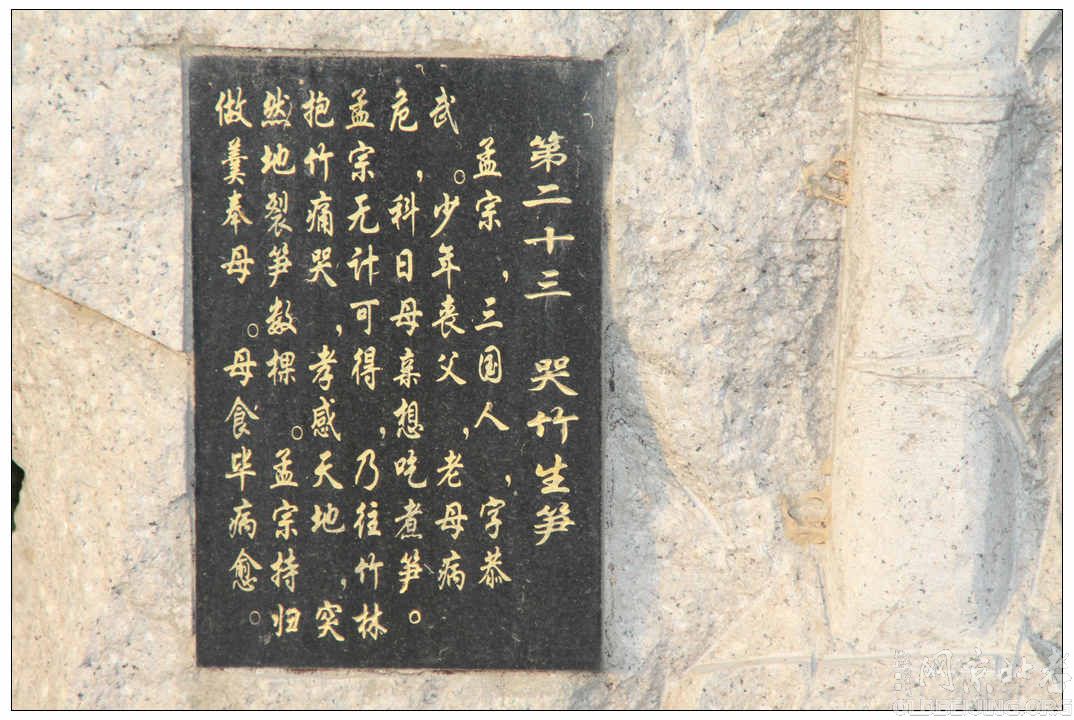 第二十三 哭竹生笋
孟宗，三国人，字恭
武。少年丧父，老母病
危，科日母亲想吃煮笋。
孟宗无计可得，乃往竹林
抱竹痛哭，孝感天地，突
然地裂笋数棵。孟宗持归
做羹奉母。母食毕病愈。
OLDBEIJING.ORG